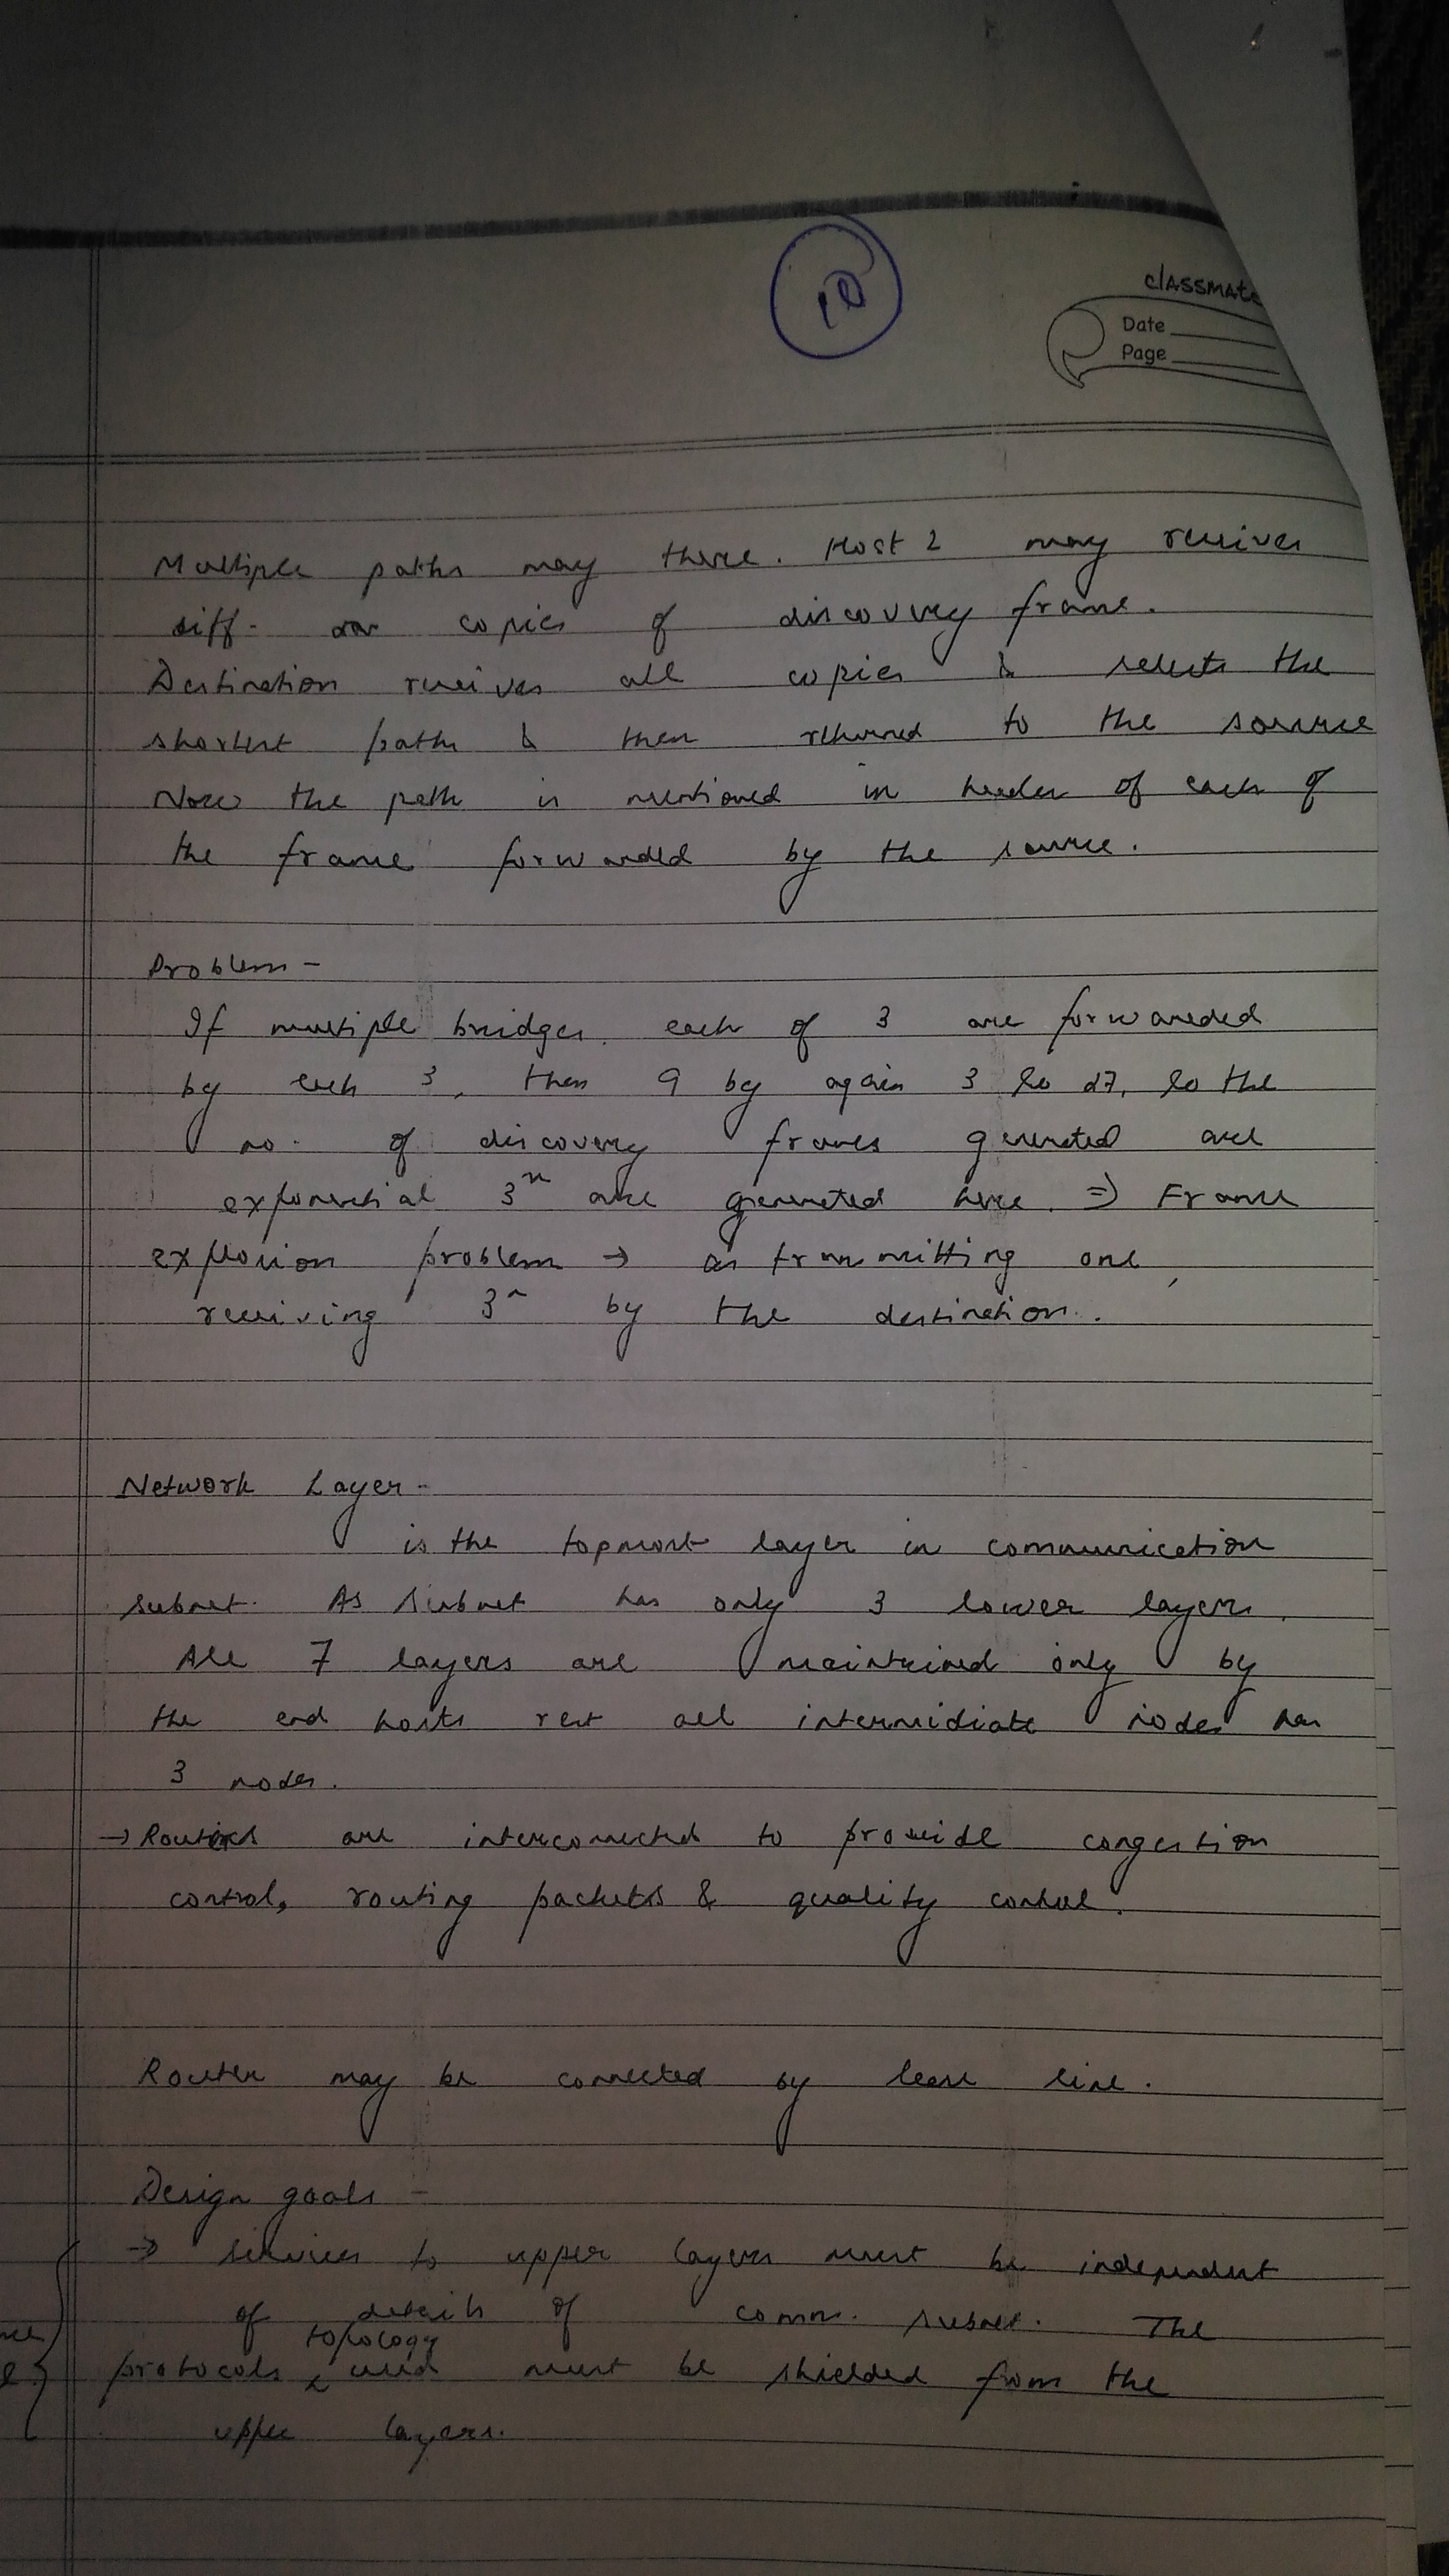 10
classmate
Date
Page
Multiple paths may there. Host 2 may receives
diff. copies of discovery frame.
Destination receives all copies & selects the
shortest path & then returned to the source
Now the path is mentioned in header of each of
the frame forwarded by the source.
Problem -
If multiple bridges. each of 3 are forwareded
by each 3, then 9 by again 3 so 27, so the
no. of discovery frames generated are
exponential 3^n are generated here. => Frame
explosion problem → as transmitting one,
receiving 3^n by the destination.
Network Layer -
is the topmost layer in communication
subnet. As subnet has only 3 lower layers.
All 7 layers are maintained only by
the end hosts rest all intermidiate nodes has
3 nodes.
→ Routers are interconnected to provide congestion
control, routing packets & quality control.
Router may be connected by lease line.
Design goals -
→ services to upper layers must be independent
of details of comm. subnet. The
topology
protocols used must be shielded from the
upper layers.